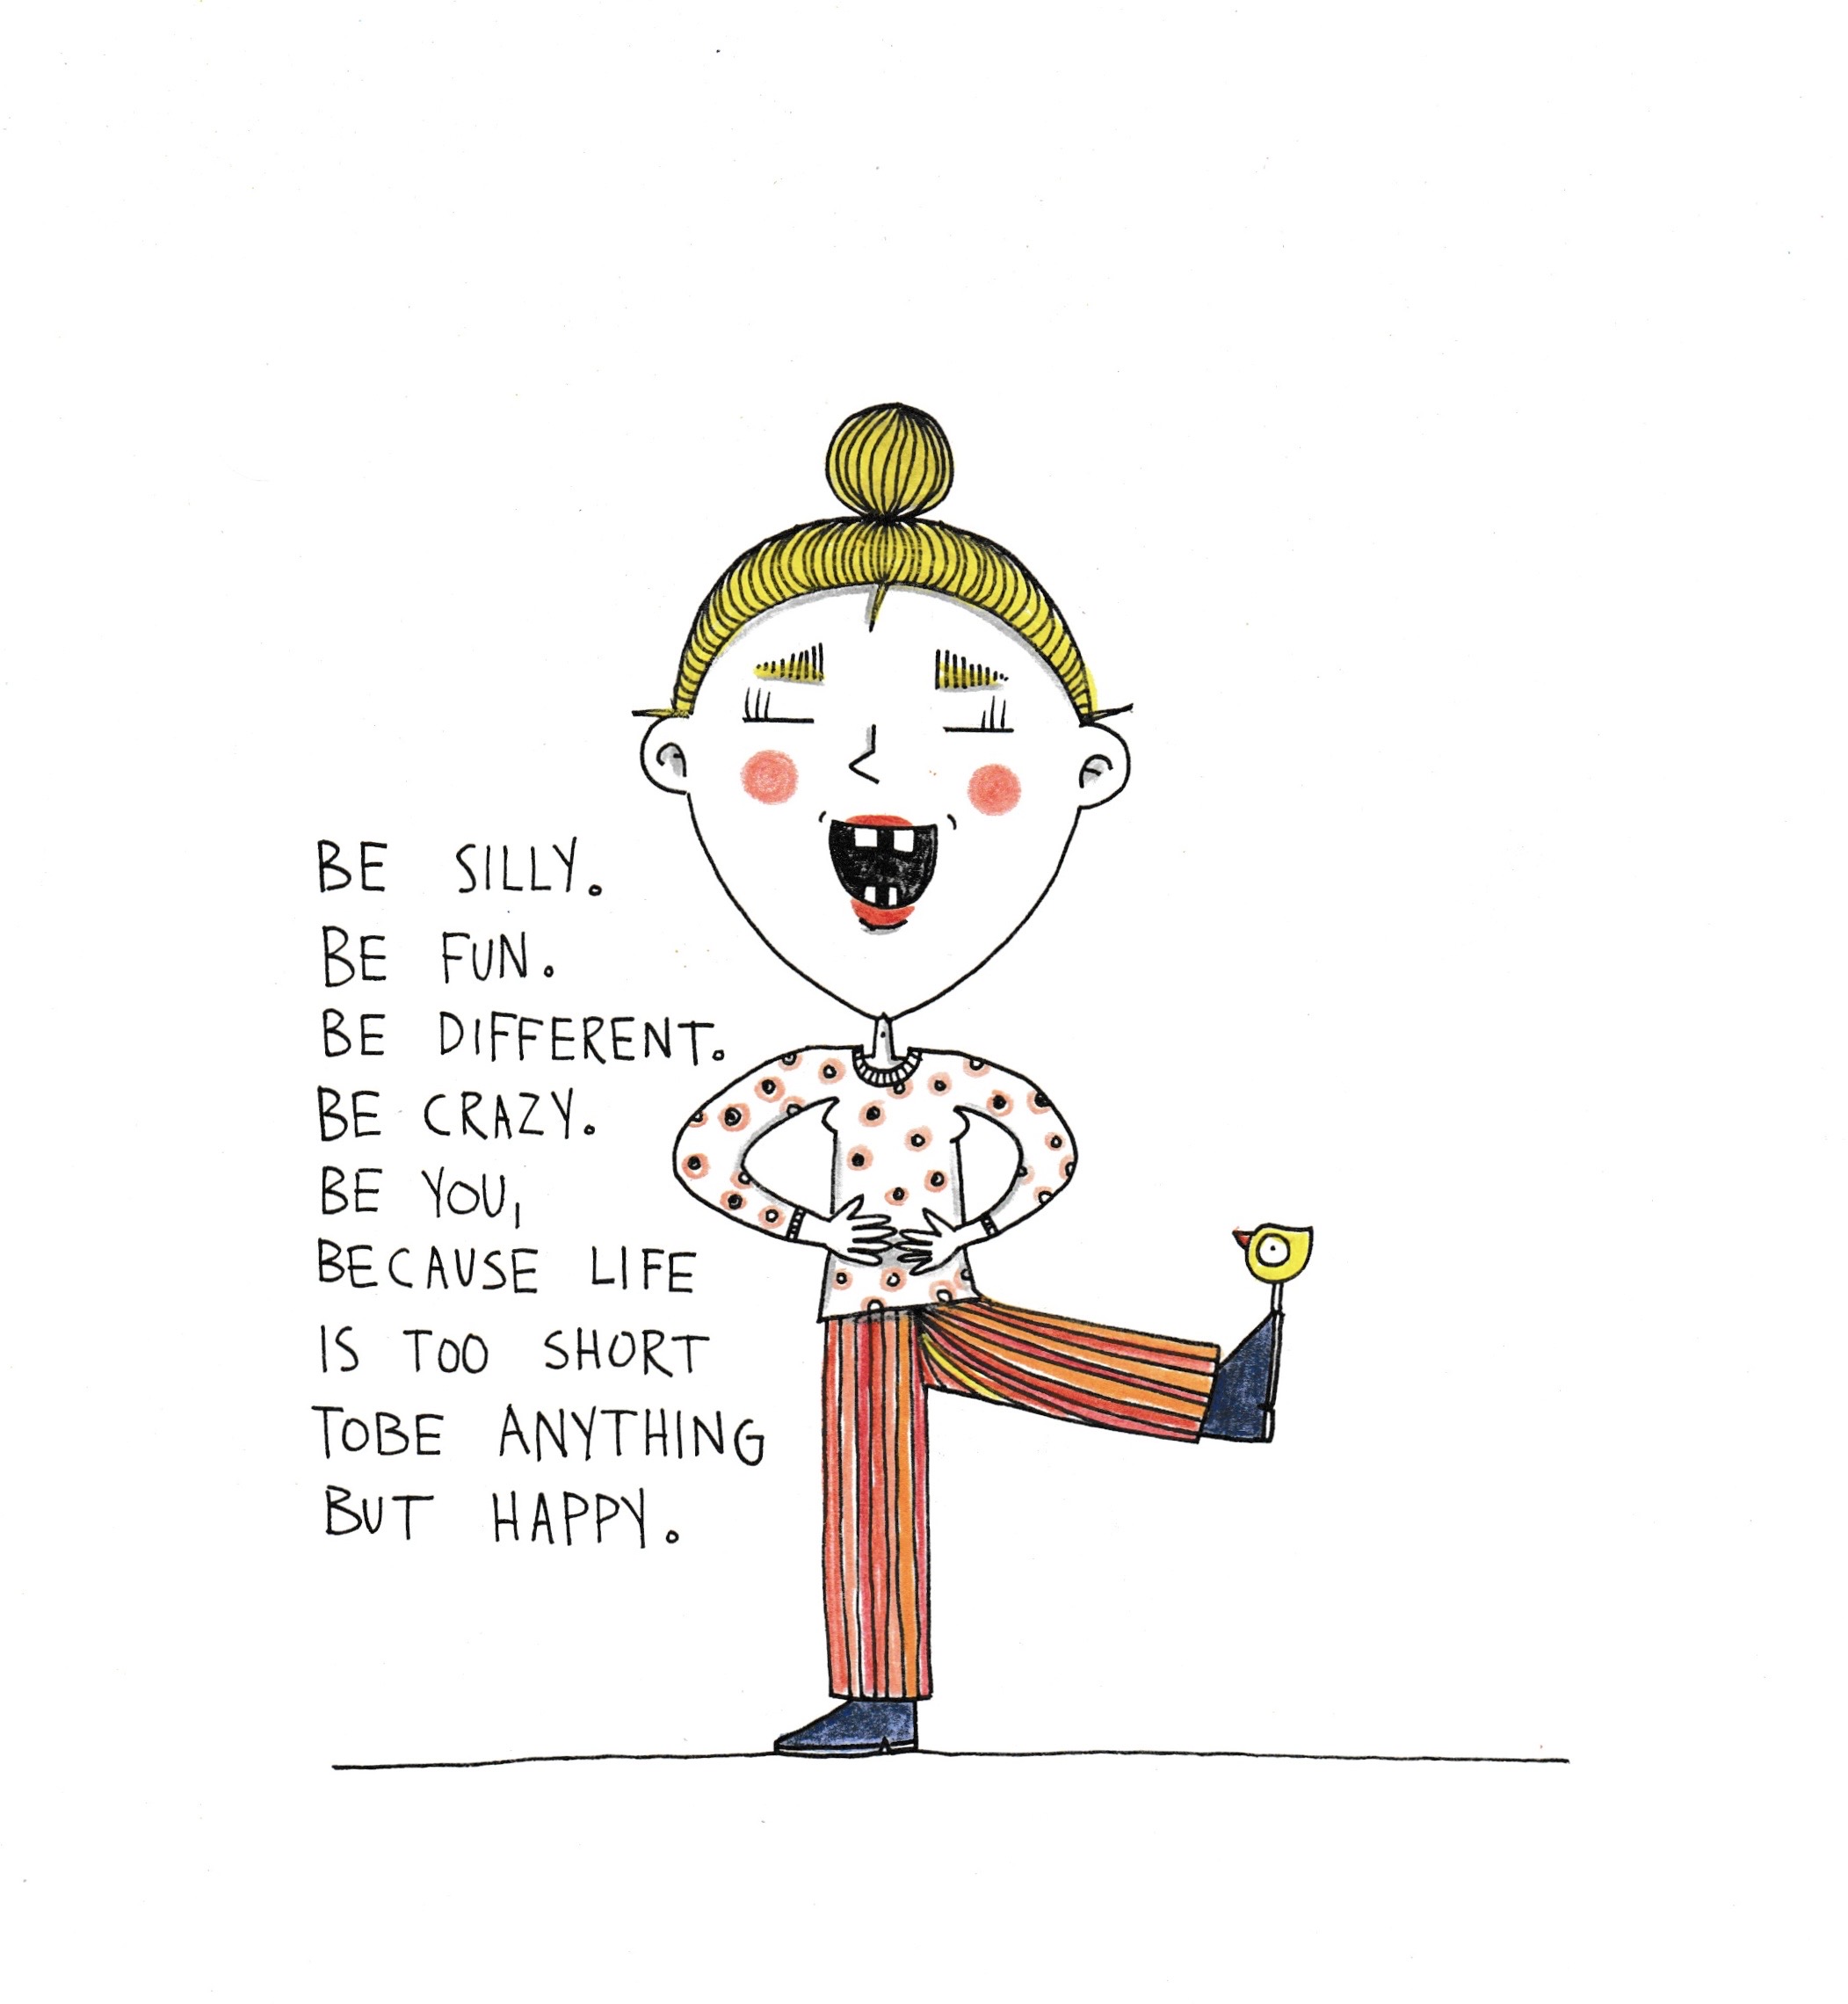 BE SILLY.
BE FUN.
BE DIFFERENT.
BE CRAZY.
BE YOU,
BECAUSE LIFE
IS TOO SHORT
TOBE ANYTHING
BUT HAPPY.